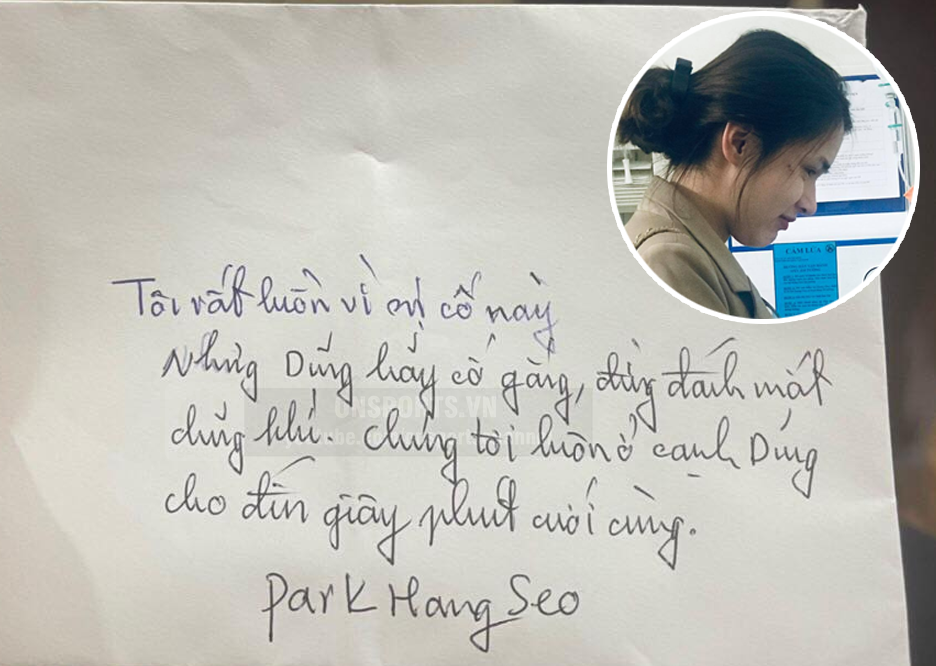 CẤM LỬA
Tôi rất buồn vì sự cố này
Nhưng Dũng hãy cố gắng, đừng đánh mất
ONSPORTS.VN
dũng khí. Chúng tôi luôn ở cạnh Dũng
cho đến giây phút cuối cùng.
Park Hang Seo